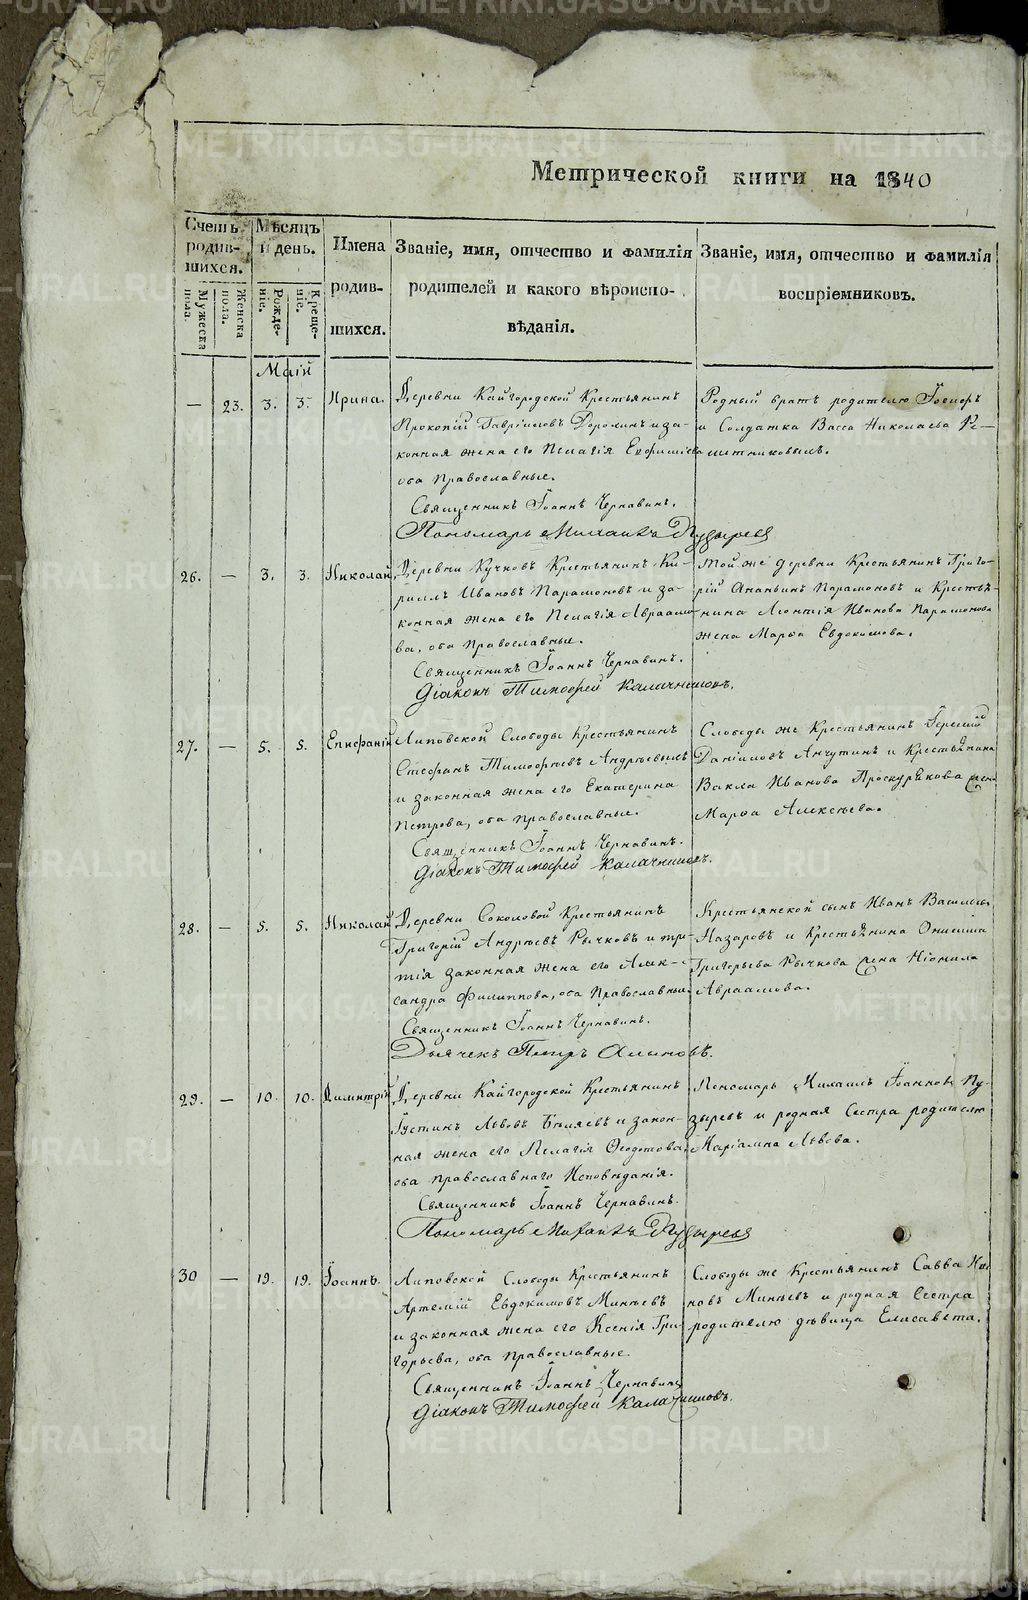 METRIKI.GASO-URAL.RU
Метрической книги на 1840
Счетъ родив-шихся.
Мѣсяцъ и день.
Имена родив-шихся.
Званіе, имя, отчество и фамилія родителей и какого вѣроиспо-вѣданія.
Званіе, имя, отчество и фамилія воспріемниковъ.
Мужеска пола.
Женска пола.
Рожде-ніе.
Креще-ніе.
Маій
— 23. 3. 3. Ирина.
Деревни Кайгородской Крестьянинъ
Прокопій Гавріиловъ Дорохинъ и за-
конная жена его Пелагія Евфиміева
оба Православные.
Священникъ Іоаннъ Чернавинъ.
Пономарь Михаилъ Пузыревъ
Родный братъ родителю Іосифъ
и Солдатка Васса Николаева Ре-
шетниковыхъ.
26. — 3. 3. Николай
Деревни Кучковъ Крестьянинъ Ки-
риллъ Ивановъ Парамоновъ и за-
конная жена его Пелагія Авраамо-
ва, оба Православные.
Священникъ Іоаннъ Чернавинъ.
Діаконъ Тимофей Калачниковъ.
Той же деревни Крестьянинъ Григо-
рій Ананьинъ Парамоновъ и Крестья-
нина Леонтія Иванова Парамонова
жена Марѳа Евдокимова.
27. — 5. 5. Епифаній
Липовской Слободы Крестьянинъ
Стефанъ Тимофѣевъ Андрѣевыхъ
и законная жена его Екатерина
Петрова, оба православные.
Священникъ Іоаннъ Чернавинъ.
Діаконъ Тимофей Калачниковъ.
Слободы же Крестьянинъ Іеремій
Даніиловъ Анчутинъ и Крестьянина
Вакла Иванова Проскурякова жена
Марѳа Алексѣева.
28. — 5. 5. Николай
Деревни Соколовой Крестьянинъ
Григорій Андрѣевъ Рычковъ и тре-
тія законная жена его Алек-
сандра Филиппова, оба Православные.
Священникъ Іоаннъ Чернавинъ.
Дьячекъ Петръ Алиновъ.
Крестьянской сынъ Иванъ Васильевъ
Назаровъ и Крестьянина Онисима
Григорьева Рычкова жена Неонила
Авраамова.
29. — 10. 10. Димитрій
Деревни Кайгородской Крестьянинъ
Іустинъ Львовъ Бѣляевъ и закон-
ная жена его Пелагія Ѳеодотова
оба православнаго Исповѣданія.
Священникъ Іоаннъ Чернавинъ.
Пономарь Михаилъ Пузыревъ
Пономарь Михаилъ Іоанновъ Пу-
зыревъ и родная сестра родителю
Маріамна Львова.
30 — 19. 19. Іоаннъ.
Липовской Слободы Крестьянинъ
Артемій Евдокимовъ Минѣевъ
и законная жена его Ксенія Гри-
горьева, оба православные.
Священникъ Іоаннъ Чернавинъ
Діаконъ Тимофей Калачниковъ.
Слободы же Крестьянинъ Савва
новъ Минѣевъ и родная сестра
родителю дѣвица Елисавета.